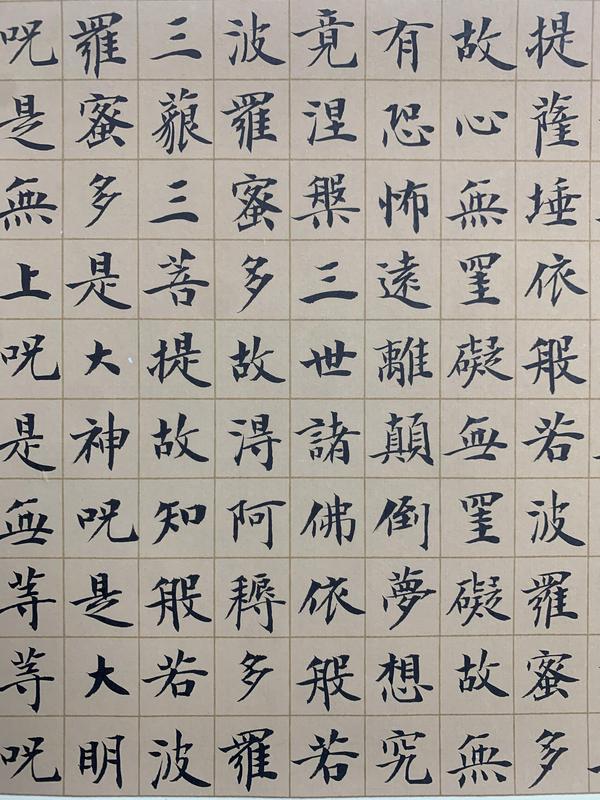 提薩埵依般若波羅蜜多
故心無罣礙無罣礙故無
有恐怖遠離顛倒夢想究
竟涅槃三世諸佛依般若
波羅蜜多故得阿耨多羅
三藐三菩提故知般若波
羅蜜多是大神呪是大明
呪是無上呪是無等等呪